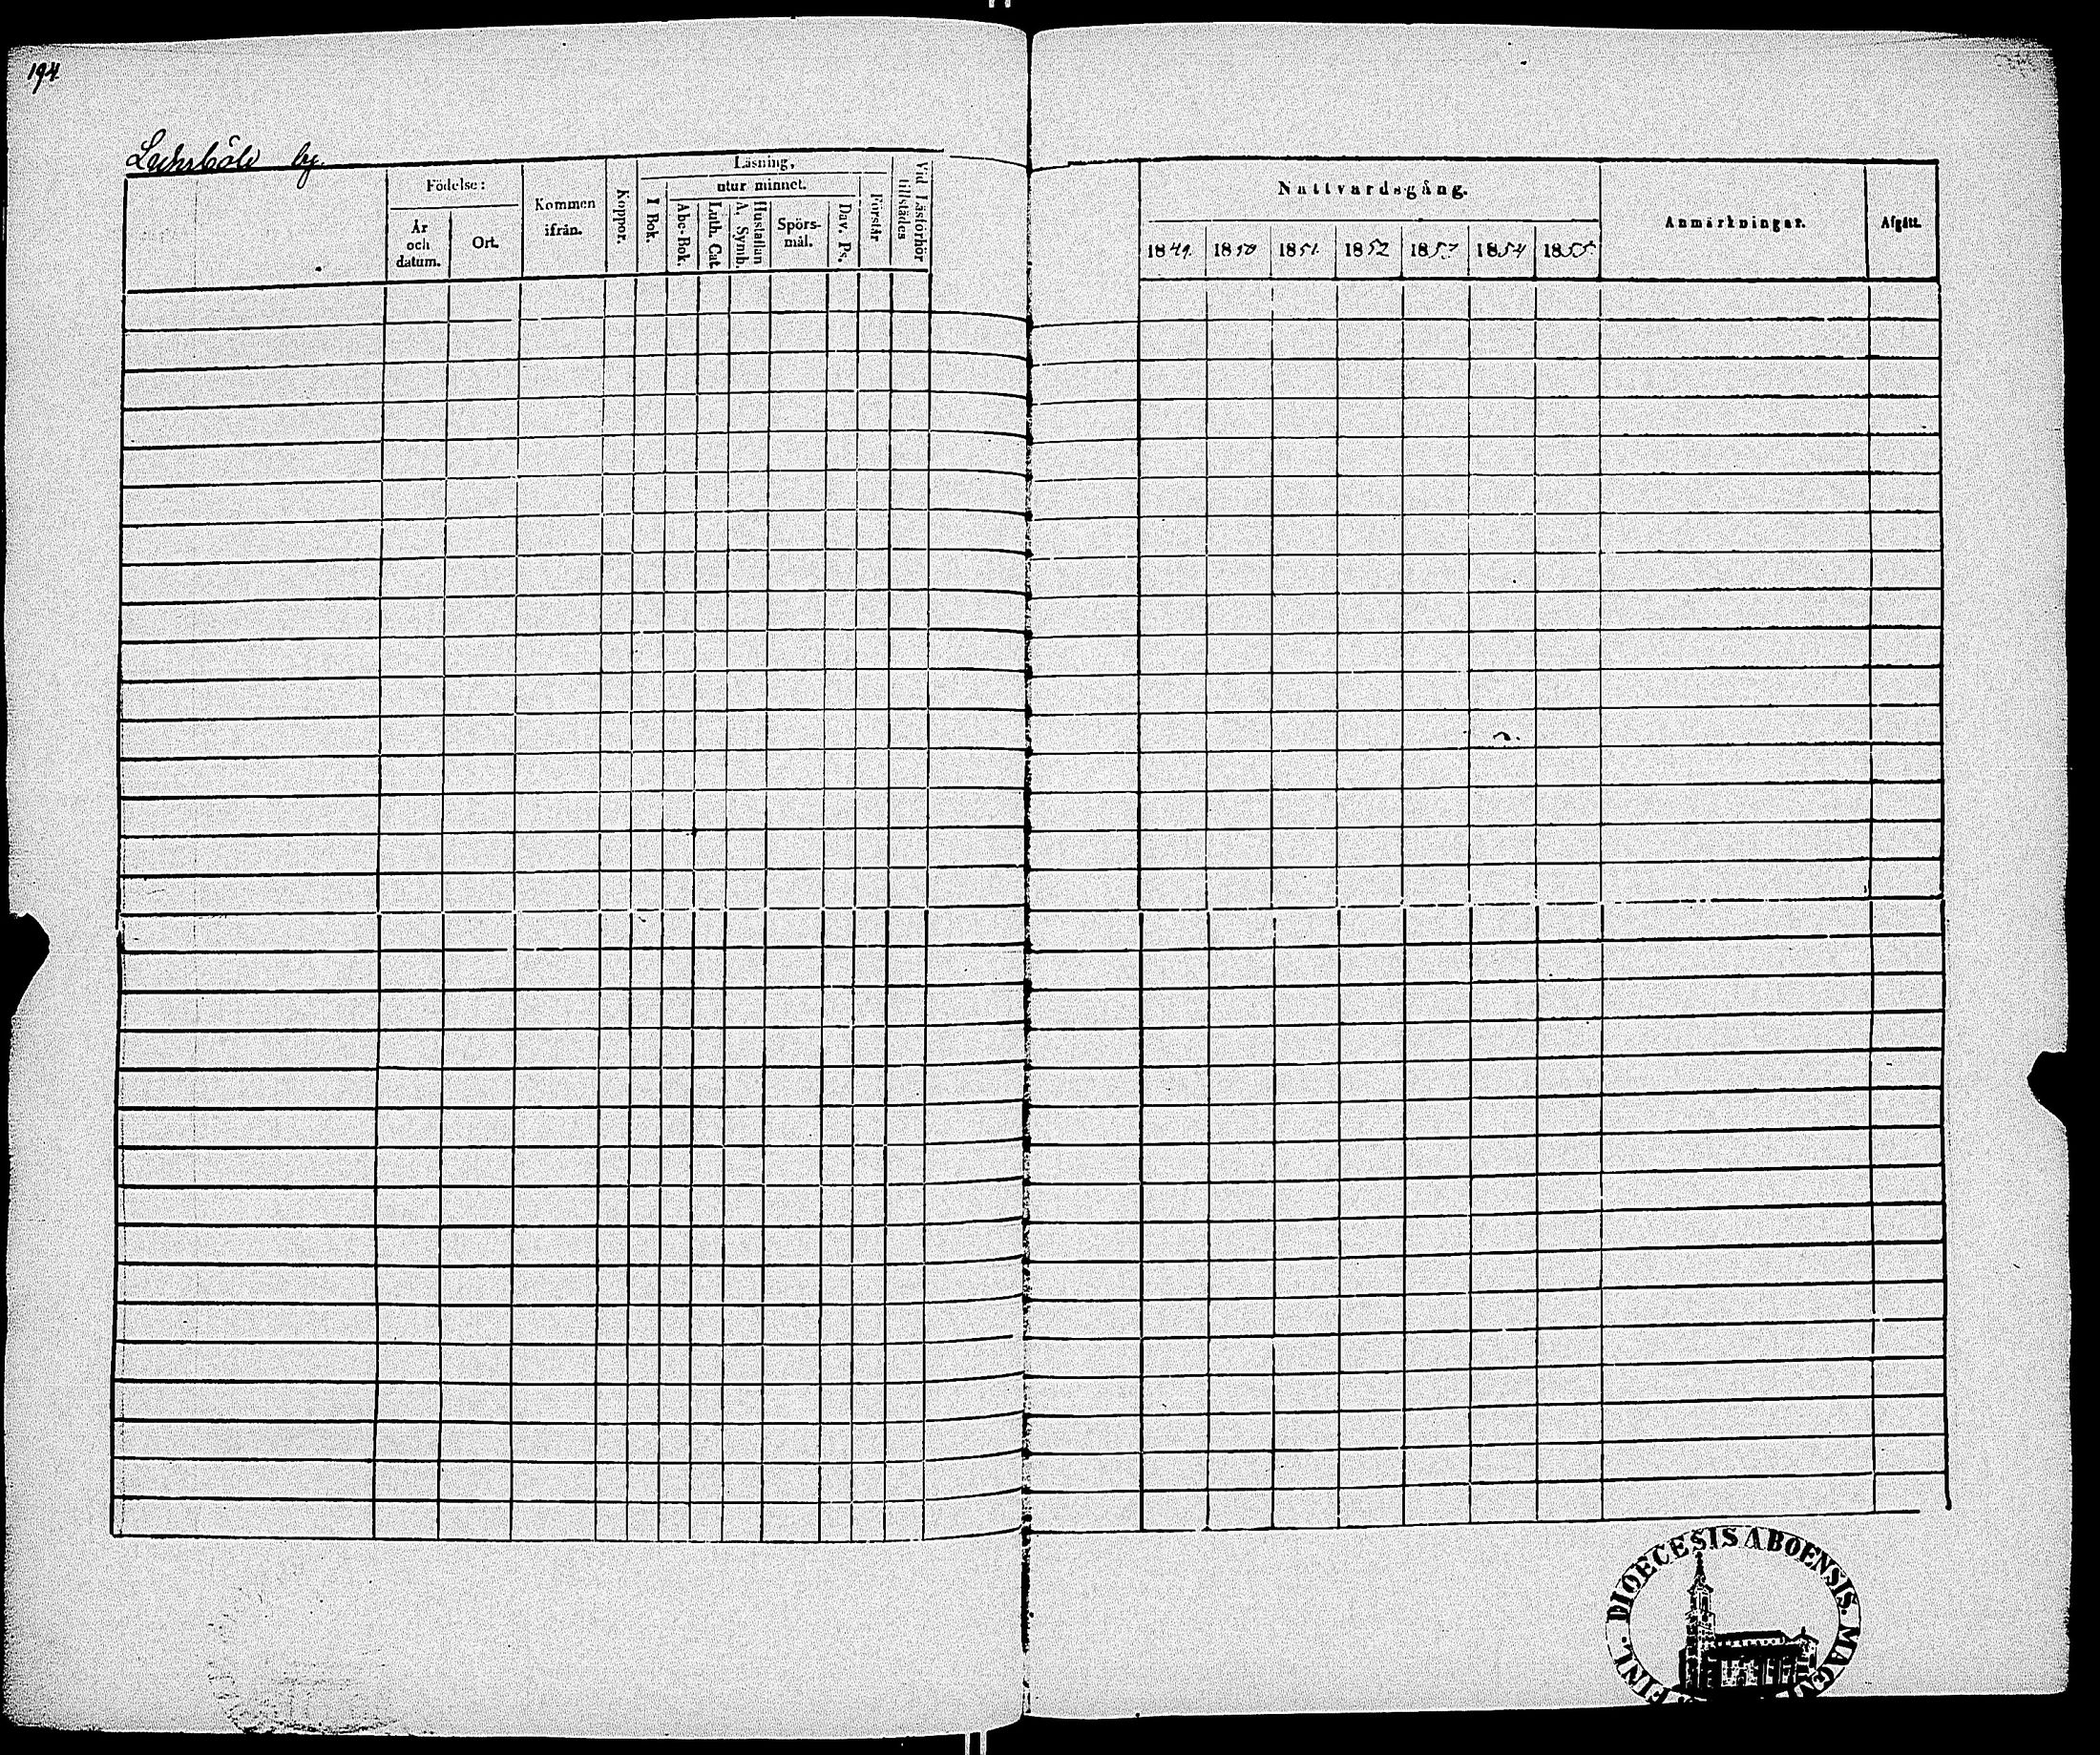 194
by.
Födelse:
År och datum.
Ort.
Kommen ifrån.
Koppor.
Läsning,
I Bok.
utur minnet.
Abc-Bok.
Luth. Cat.
A. Symb. Hustaflan
Spörs-mål.
Dav. Ps.
Förstår
Vid Läsförhör tillstädes
Nattvardsgång.
1849. 1850 1851. 1852 1853 1854 1855.
Anmärkningar.
Afgått.
DIOECESIS ABOENSIS. FINL.